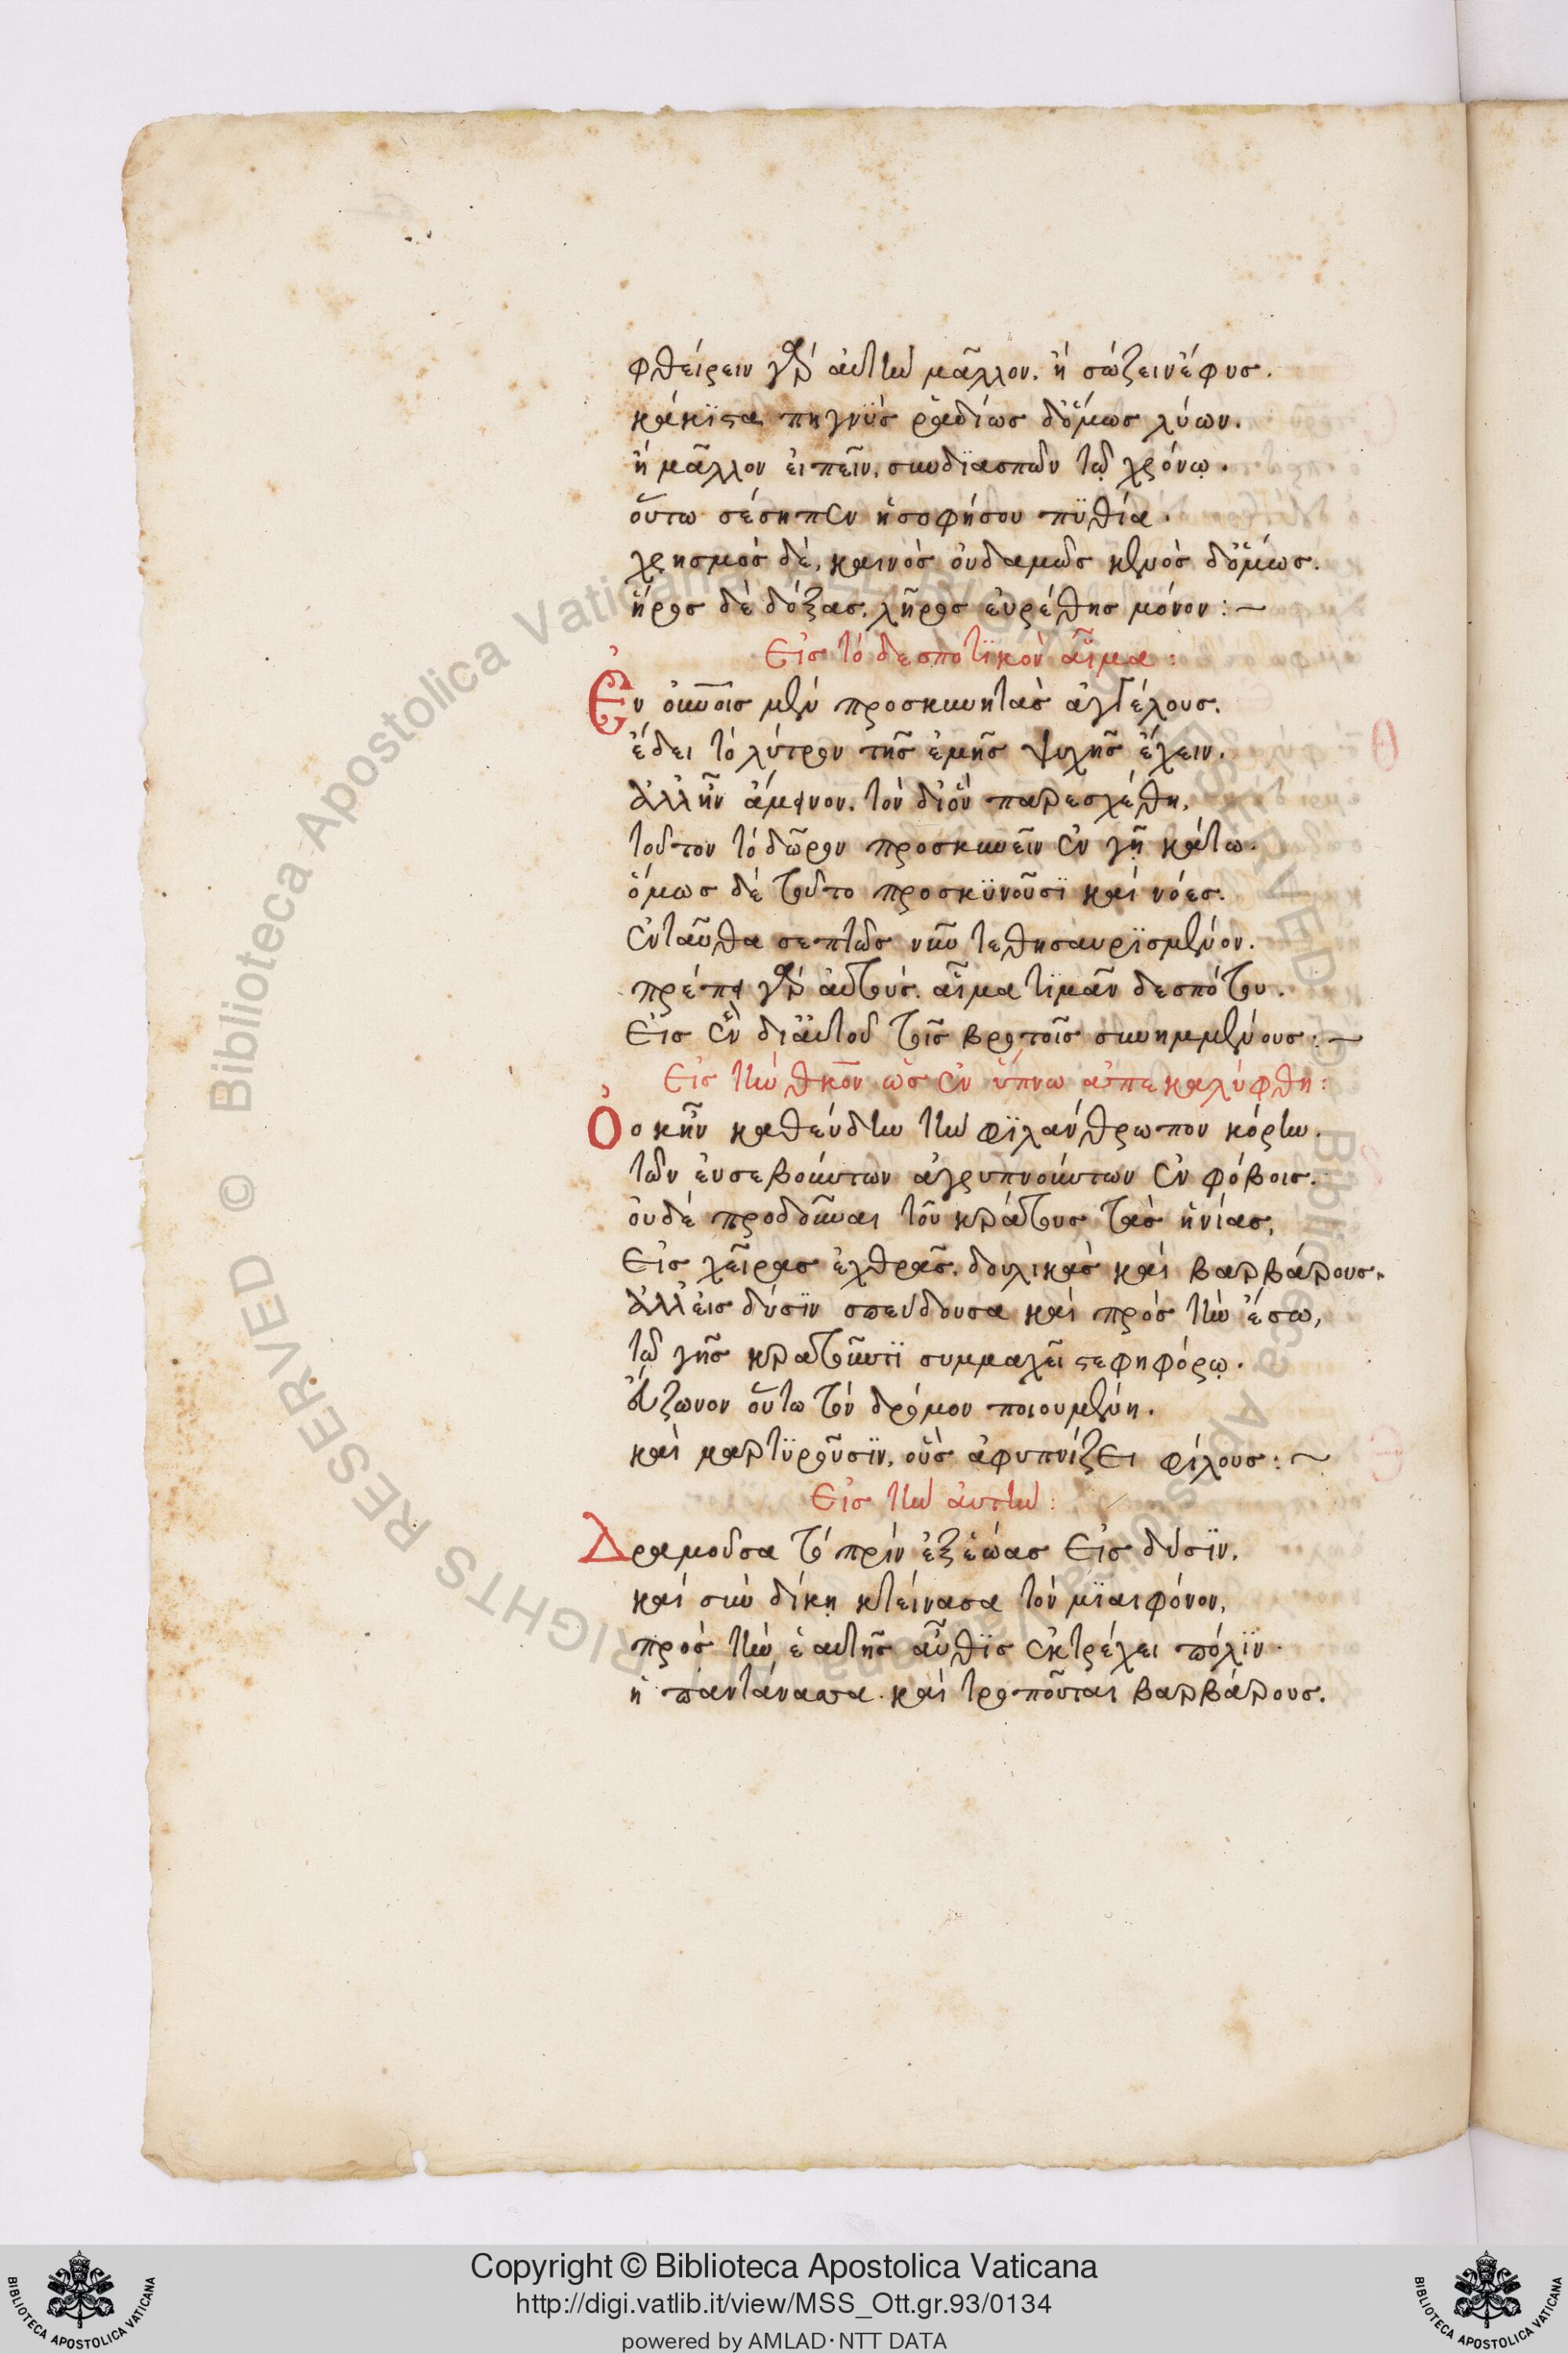 φθείρειν γὰρ ἀυτὴν μᾶλλον. ἢ σώζειν ἔφυς.
κάκϊστα πηγνϋς ῥαδίως δ' ὅμως λύων.
ἢ μᾶλλον ἐιπεῖν, συνδϊασπῶν τῶ χρόνω.
οὕτω σέσηπεν ἡ σοφή σου πϋθία.
χρησμὸς δὲ, καινὸς οὐδαμῶς κενὸς δ' ὅμως.
ἥρως δὲ δόξας. λῆρος ἑυρέθης μόνον:~
Εἰς τὸ δεσποτϊκὸν αἷμα:
Ἐν οὐνοις μὲν προσκυνητὰς ἀγγέλους.
ἔδει τὸ λύτρον τῆς ἐμῆς ψυχῆς ἔχειν.
ἀλλ' ἦν ἄμεινον. τὸν δι' ὃν παρεσχέθη,
τοῦτον τὸ δῶρον προσκυνεῖν ἐν γῆ κάτω.
ὅμως δὲ τοῦτο προσκϋνοῦσϊ καὶ νόες.
ἐνταῦθα σεπτῶς νῦν τεθησαυρϊσμένον.
πρέπει γὰρ ἀυτοὺς. αἷμα τϊμᾶν δεσπότου.
Εἰς ἓν δι' ἀυτοῦ τοῖς βροτοῖς συνημμένους:~
Εἰς τὴν θκον ὡς ἐν ὕπνω ἀπεκαλύφθη:
Ὀοκ ἦν καθεύδην τὴν φϊλάνθρωπον κόρην.
τῶν ἐυσεβούντων ἀγρυπνούντων ἐν φόβοις.
ὀυδὲ προδοῦναι τοῦ κράτους τὰς ἡνίας,
Εἰς χεῖρας ἐχθρᾶς. δουλικὰς καὶ βαρβάρους.
ἀλλ' ἐις δύσϊν σπεύδουσα καὶ πρὸς τὴν ἕσω,
τῶ γῆς κρατοῦντϊ συμμαχεῖ στεφηφόρω.
ἔυζωνον οὕτω τὸν δρόμον ποιουμένη.
καὶ μαρτϋροῦσϊν, οὓς ἀφυπνίζει φίλους:~
Εἰς τὴν ἀυτὴν:
Δραμοῦσα τὸ πρὶν ἐξ ἑώας Εἰς δύσϊν.
καὶ σὺν δίκη κτείνασα τὸν μϊαιφόνον,
πρὸς τὴν ἑαυτῆς αὖθϊς ἐκτρέχει πόλϊν.
ἡ παντάνασσα. καὶ τροποῦται βαρβάρους.
Copyright © Biblioteca Apostolica Vaticana
http://digi.vatlib.it/view/MSS_Ott.gr.93/0134
powered by AMLAD·NTT DATA